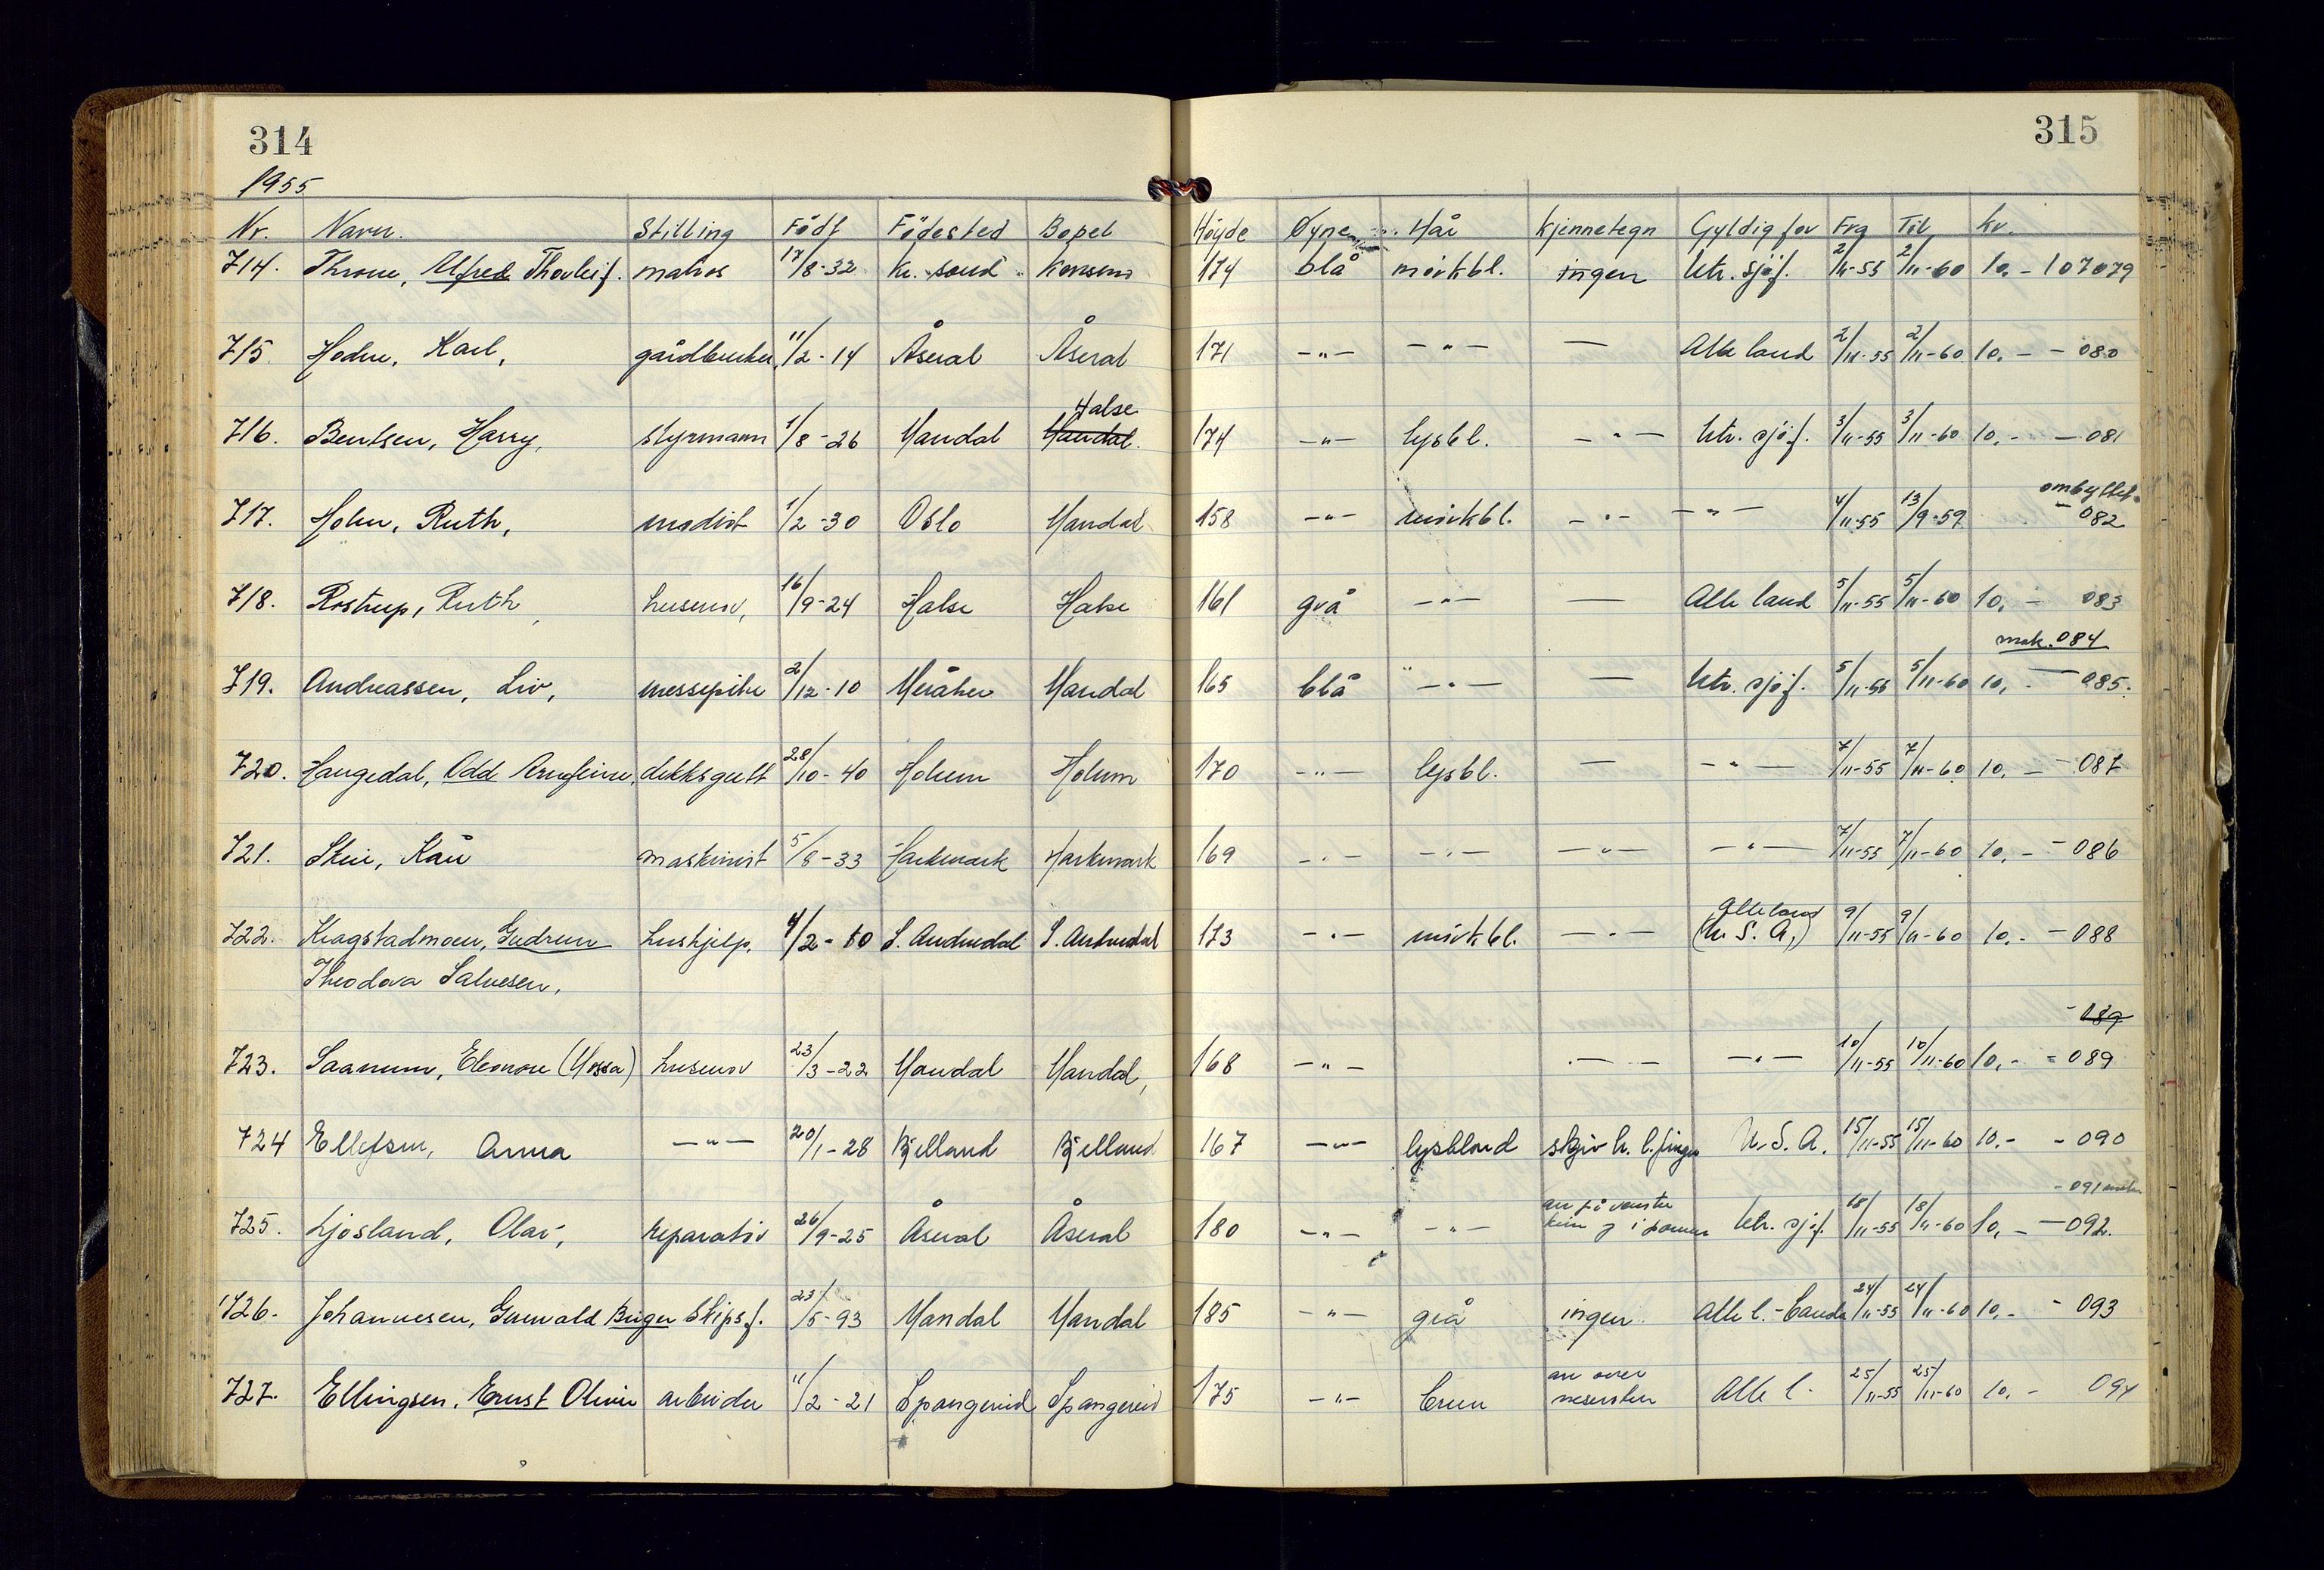 314
315
1955
Nr. Navn. Stilling Født Födested Bopel Höyde Øyne Hår kjennetegn Gyldig for Fra Til kr.
714. Throne, Alfred Thorleif. matros 17/8-32 Kr. sand 174 blå mörkbl. ingen Utr. sjöf. 2/11-55 2/11-60 10,- 107079
715. Karl, gårdbruker, 11/2-14 Åseral Åseral 171 -"- -"- — Alle land 2/11-55 2/11-60 10,- - 080
Halse
716. Bentsen, Harry, styrmann 1/8-26 Mandal Mandal. 174 -"- lysbl. -"- Utr. sjöf. 3/11-55 3/11-60 10,- - 081
ombyttet
717. Holm, Ruth, modist 1/2-30 Oslo Mandal 158 -"- mörkbl. -"- -"- 4/11-55 13/9-59 - 082
718. Rostrup, Ruth, husmor, 16/9-24 Halse Halse 161 grå -"- — Alle land 5/11-55 5/11-60 10,- 083
mak. 084
719. Andreassen, Liv, messepike 2/12-10 Meråker Mandal 165 blå -"- — Utr. sjöf. 5/11-55 5/11-60 10,- - 085.
720. Haugedal, Odd Arnfinn, dekksgutt 28/10-40 Holum Holum 170 -"- lysbl. — -"- 7/11-55 7/11-60 10,- - 087
721. Kåre maskinist 5/8-33 Harkmark Harkmark 169 -"- -"- -"- -"- 7/11-55 7/11-60 10,- - 086
Alle land
722. Kragstadmoen, Gudrun hushjelp. 4/2-10 S. Audnedal S. Audnedal 173 -"- mörkbl. -"- (U.S.A.) 9/11-55 9/11-60 10,- - 088
Theodora Salvesen,
- 089
723. Saanum, Elenore (Mossa) husmor 23/3-22 Mandal Mandal, 168 -"- -"- -"- 10/11-55 10/11-60 10,- - 089
724 Ellefsen, Anna -"- 20/1-28 Bjelland Bjelland 167 -"- lysblond skjev h. l. finger U.S.A. 15/11-55 15/11-60 10.- - 090
- 091 mak.
arr på venstre
725. Ljosland, Olav, reparatör 26/9-25 Åseral Åseral 180 -"- -"- kinn og i pannen Utr. sjöf. 18/11-55 18/11-60 10,- - 092.
726. Johannesen, Gunvald Birger Skipsf. 23/5-93 Mandal Mandal 185 -"- grå ingen Alle l. - 24/11-55 24/11-60 10,- - 093
arr over
727. Ellingsen, Ernst Oliver arbeider 11/2-21 Spangereid Spangereid 175 -"- brun neseroten Alle l. 25/11-55 25/11-60 10,- 094